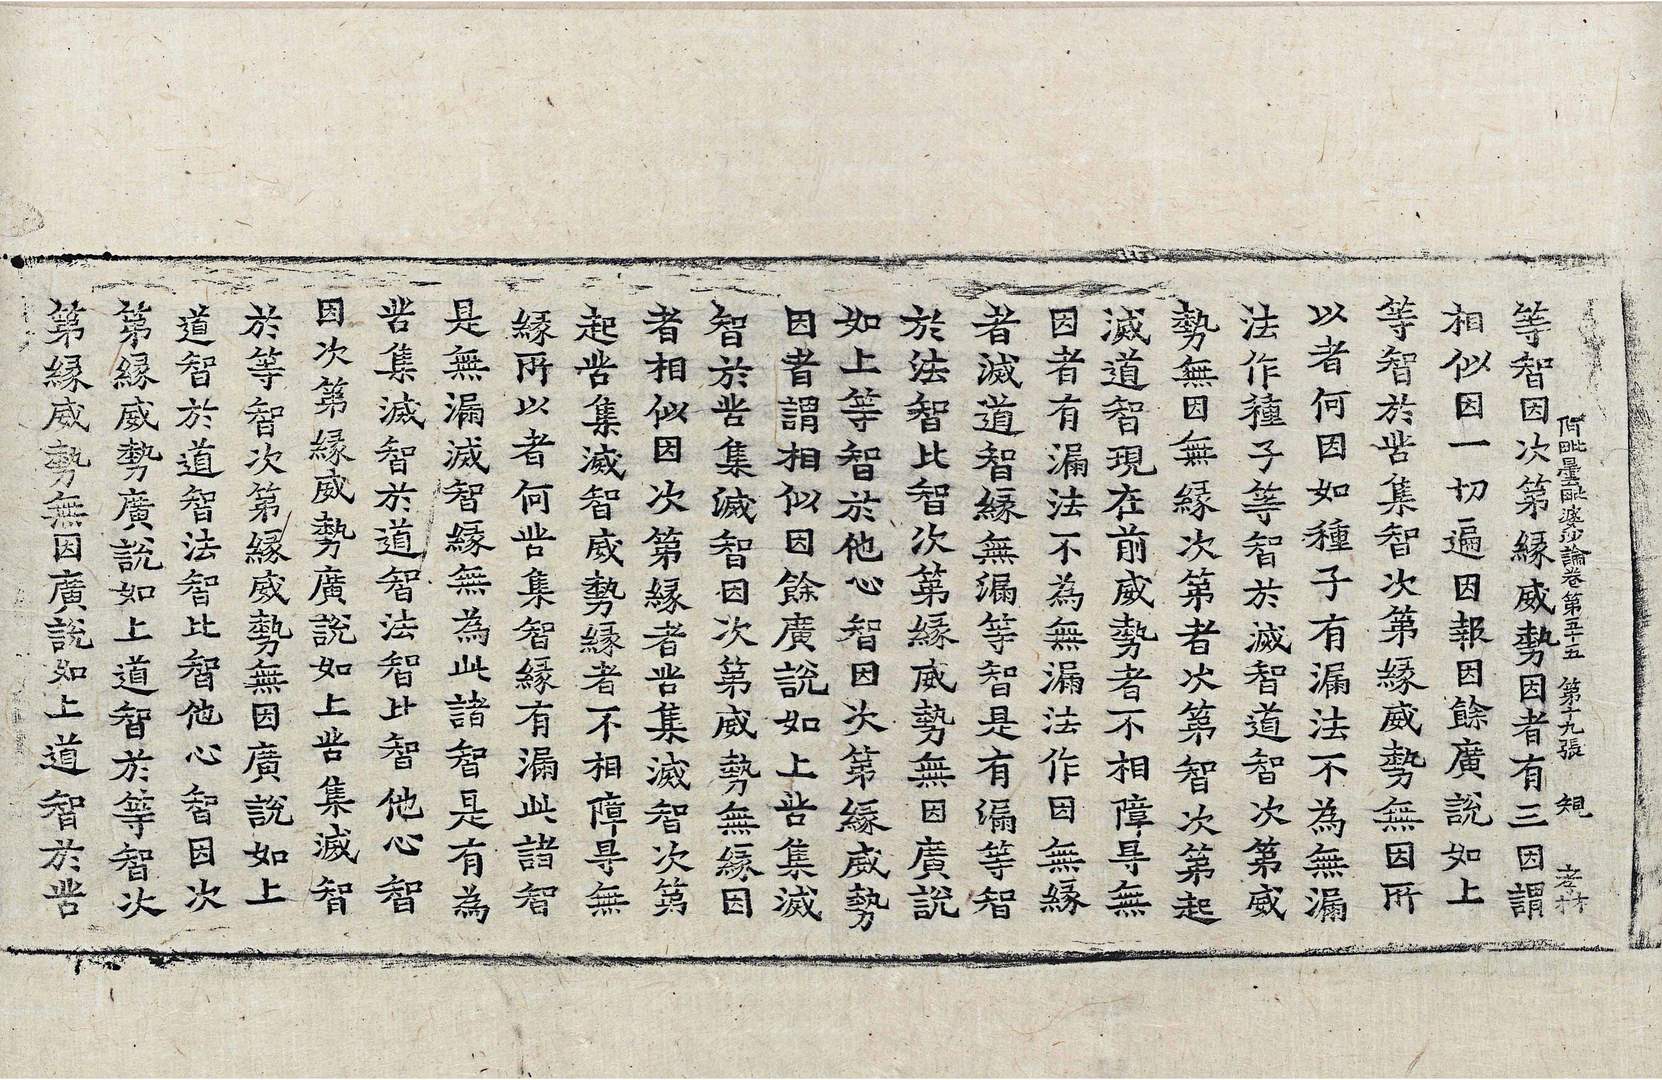 阿毗曇毗婆沙論卷第五十五　第十九張　規　孝材
等智因次第緣威勢因者有三因謂
相似因一切遍因報因餘廣說如上
等智於苦集智次第緣威勢無因所
以者何因如種子有漏法不為無漏
法作種子等智於滅智道智次第威
勢無因無緣次第者次第智次第起
滅道智現在前威勢者不相障㝵無
因者有漏法不為無漏法作因無緣
者滅道智緣無漏等智是有漏等智
於法智比智次第緣威勢無因廣說
如上等智於他心智因次第緣威勢
因者謂相似因餘廣說如上苦集滅
智於苦集滅智因次第威勢無緣因
者相似因次第緣者苦集滅智次第
起苦集滅智威勢緣者不相障㝵無
緣所以者何苦集智緣有漏此諸智
是無漏滅智緣無為此諸智是有為
苦集滅智於道智法智比智他心智
因次第緣威勢廣說如上苦集滅智
於等智次第緣威勢無因廣說如上
道智於道智法智比智他心智因次
第緣威勢廣說如上道智於等智次
第緣威勢無因廣說如上道智於苦